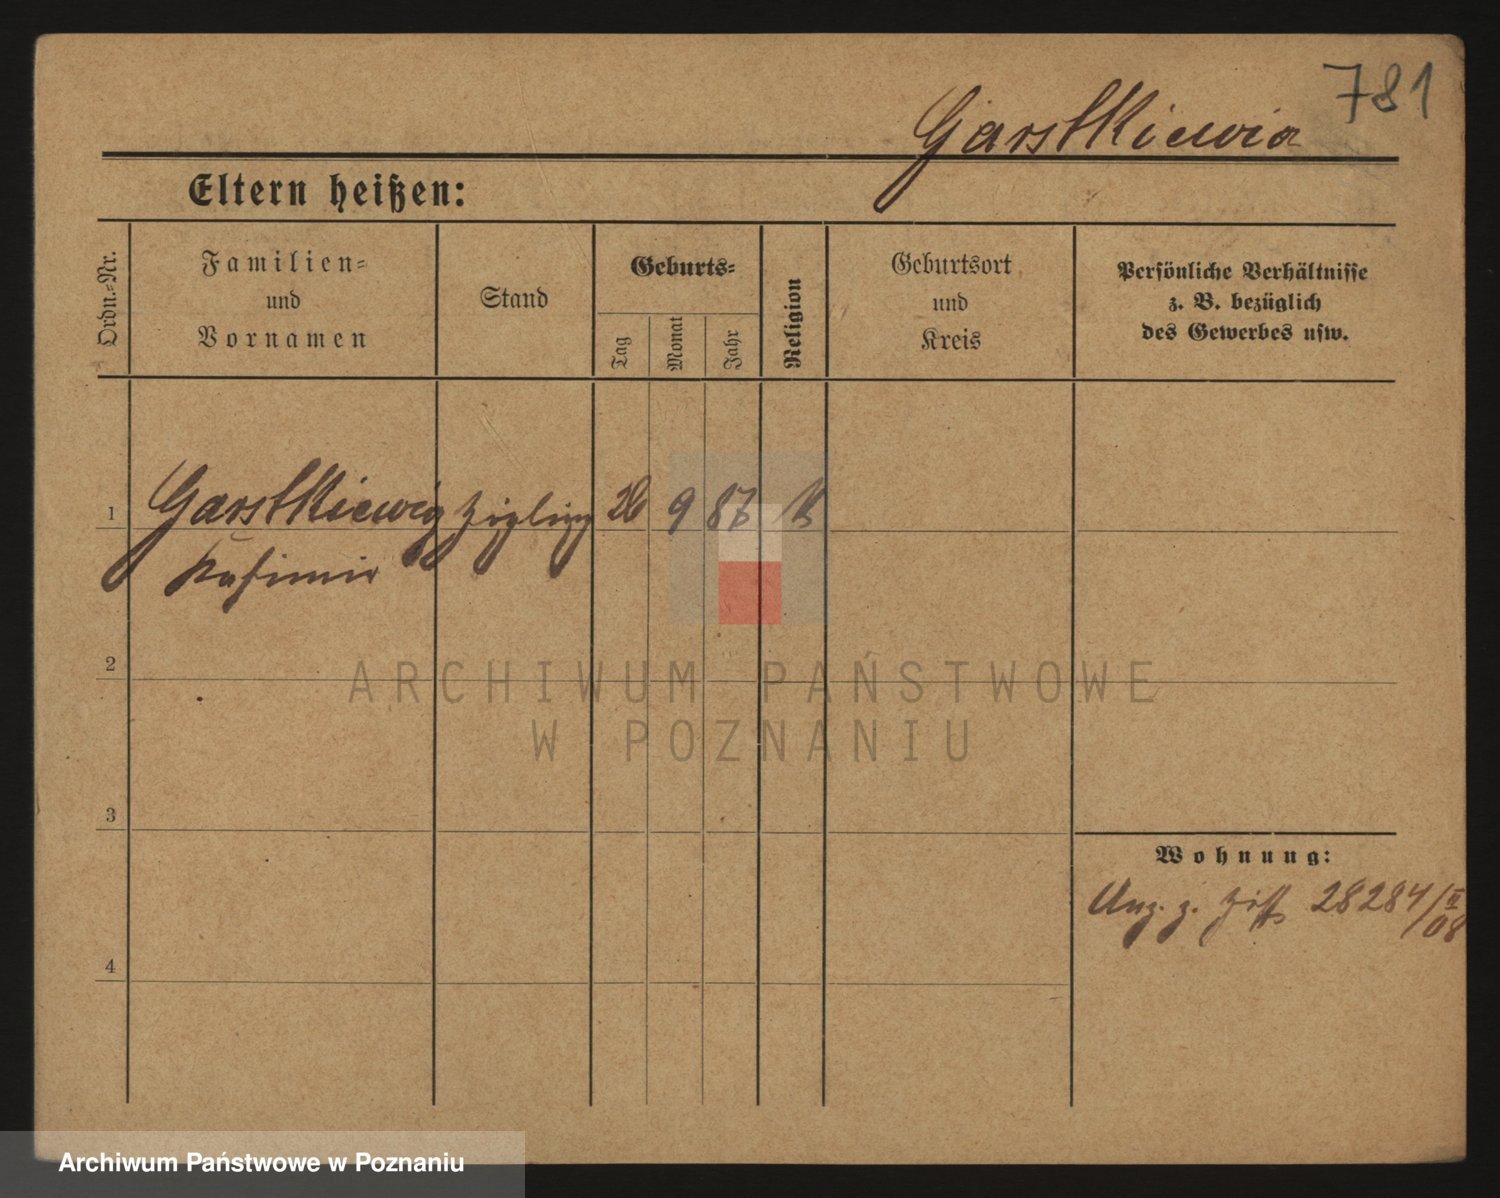 781
Garstkiewicz
Eltern heißen:
Ordn.-Nr.
Familien-
und
Vornamen
Stand
Geburts-
Tag
Monat
Jahr
Religion
Geburtsort
und
Kreis
Persönliche Verhältnisse
z. B. bezüglich
des Gewerbes usw.
1
Garstkiewicz
26 9 87 K
Kasimir
2
3
4
Wohnung:
28284/II 08
ARCHIWUM PAŃSTWOWE
W POZNANIU
Archiwum Państwowe w Poznaniu